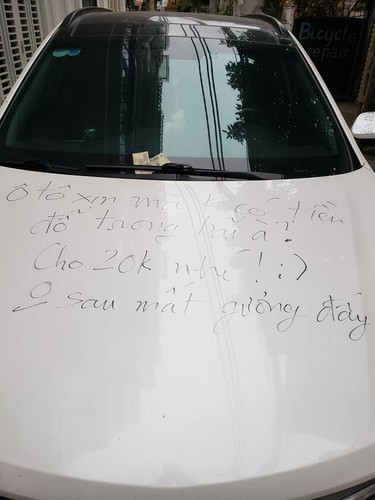 Bicycle
repair
Ô tô xịn mà k có tiền
đỗ trong bãi à?
Cho 20k nhé! :)
Q sau mất gương đấy